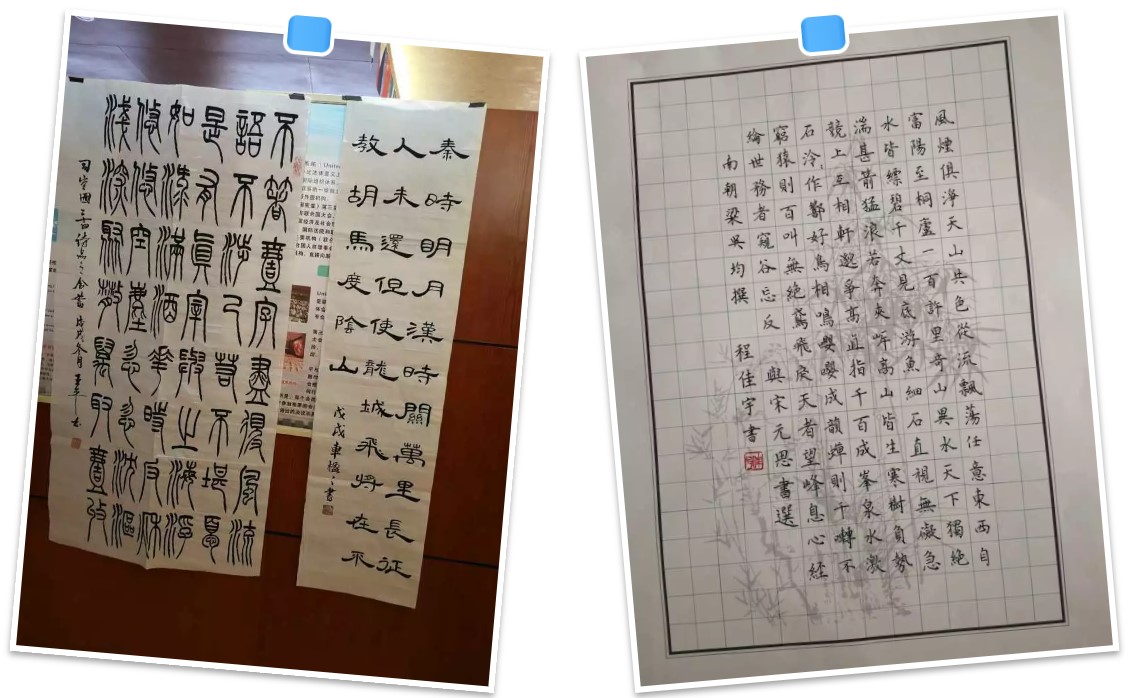 不箸壹字盡得風流
語不涉己若不堪憂
是有真宰與之海浮
如淥滿酒華時反秋
悠悠空塵忽忽沈漚
淺深聚散萬取壹收
司空圖
詩品之含蓄戊戌冬月
秦時明月漢時關萬里長征
人未還但使龍城飛將在不
教胡馬度陰山
戊戌車橋
書
風煙俱淨天山共色從流飄蕩任意東西自
富陽至桐廬一百許里奇山異水天下獨絕
水皆縹碧千丈見底游魚細石直視無礙急
湍甚箭猛浪若奔夾岸高山皆生寒樹負勢
競上互相軒邈爭高直指千百成峯泉水激
石泠作響好鳥相鳴嚶嚶成韻蟬則千轉不
窮猿則百叫無絕鳶飛戾天者望峰息心經
綸世務者窺谷忘反 與宋元思書選
南朝梁吳均撰 程佳宇書